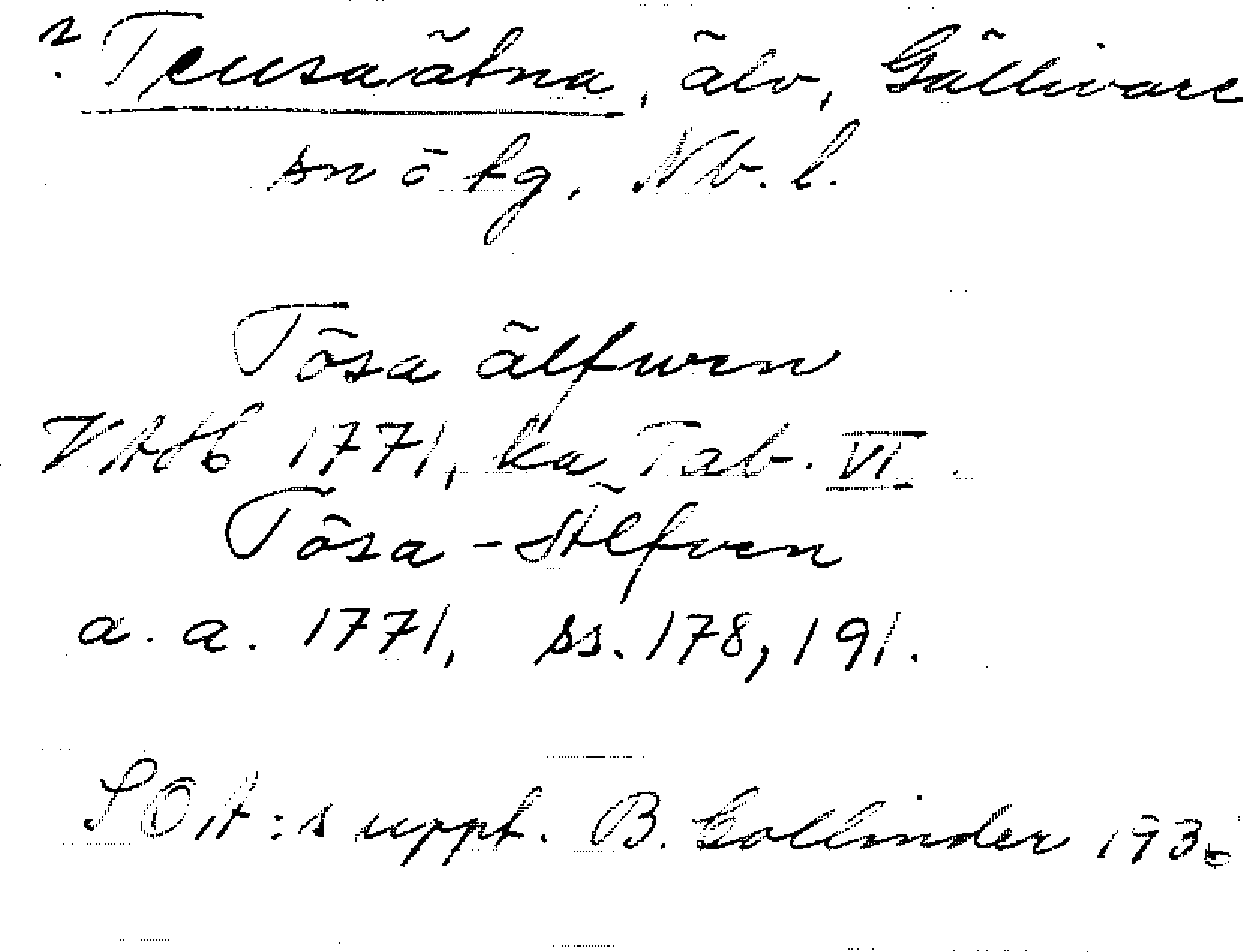 ? Teusaätna, älv, Gällivare
sn o tg. Nb. l.
Tösa älfwen
VAH 1771, ka Tab. VI
Tösa-Älfven
a. a. 1771, ss. 178, 191.
SOA:s uppt. B. Collinder